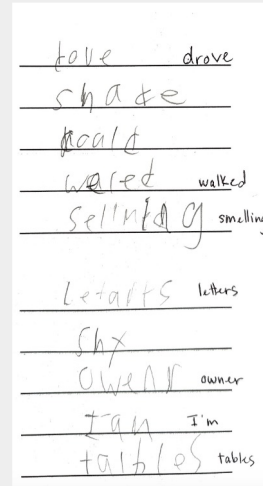 tove drove
shate
walet walked
sellnidg smelling
Letarts letters
Shx
Owenr owner
Ian I'm
taibles tables